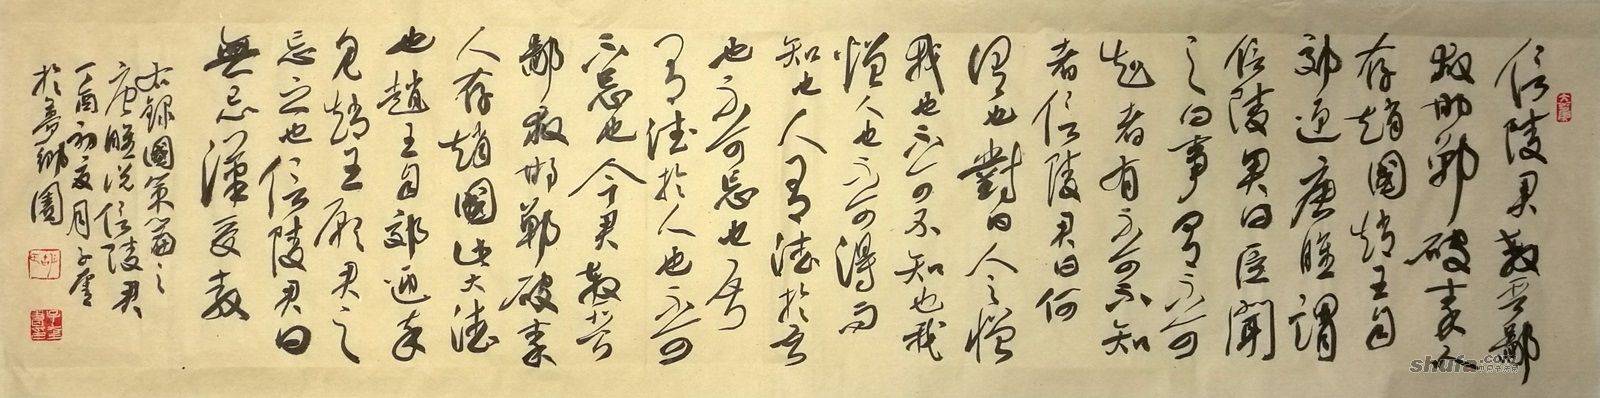 信陵君殺晉鄙
救邯鄲破秦人
存趙國趙王自
郊迎唐雎謂
信陵君曰臣聞
之曰事有不可
知者有不可不知
者信陵君曰何
謂也對曰人之憎
我也不可不知也我
憎人也不可得而
知也人有德於吾
也不可忘也吾
有德於人也不可
不忘也今君殺晉
鄙救邯鄲破秦
人存趙國此大德
也趙王自郊迎卒
見趙王願君之
忘之也信陵君曰
無忌謹受教
右錄國策篇之
唐雎說信陵君
丁酉初夏月子
於園
shufa.com